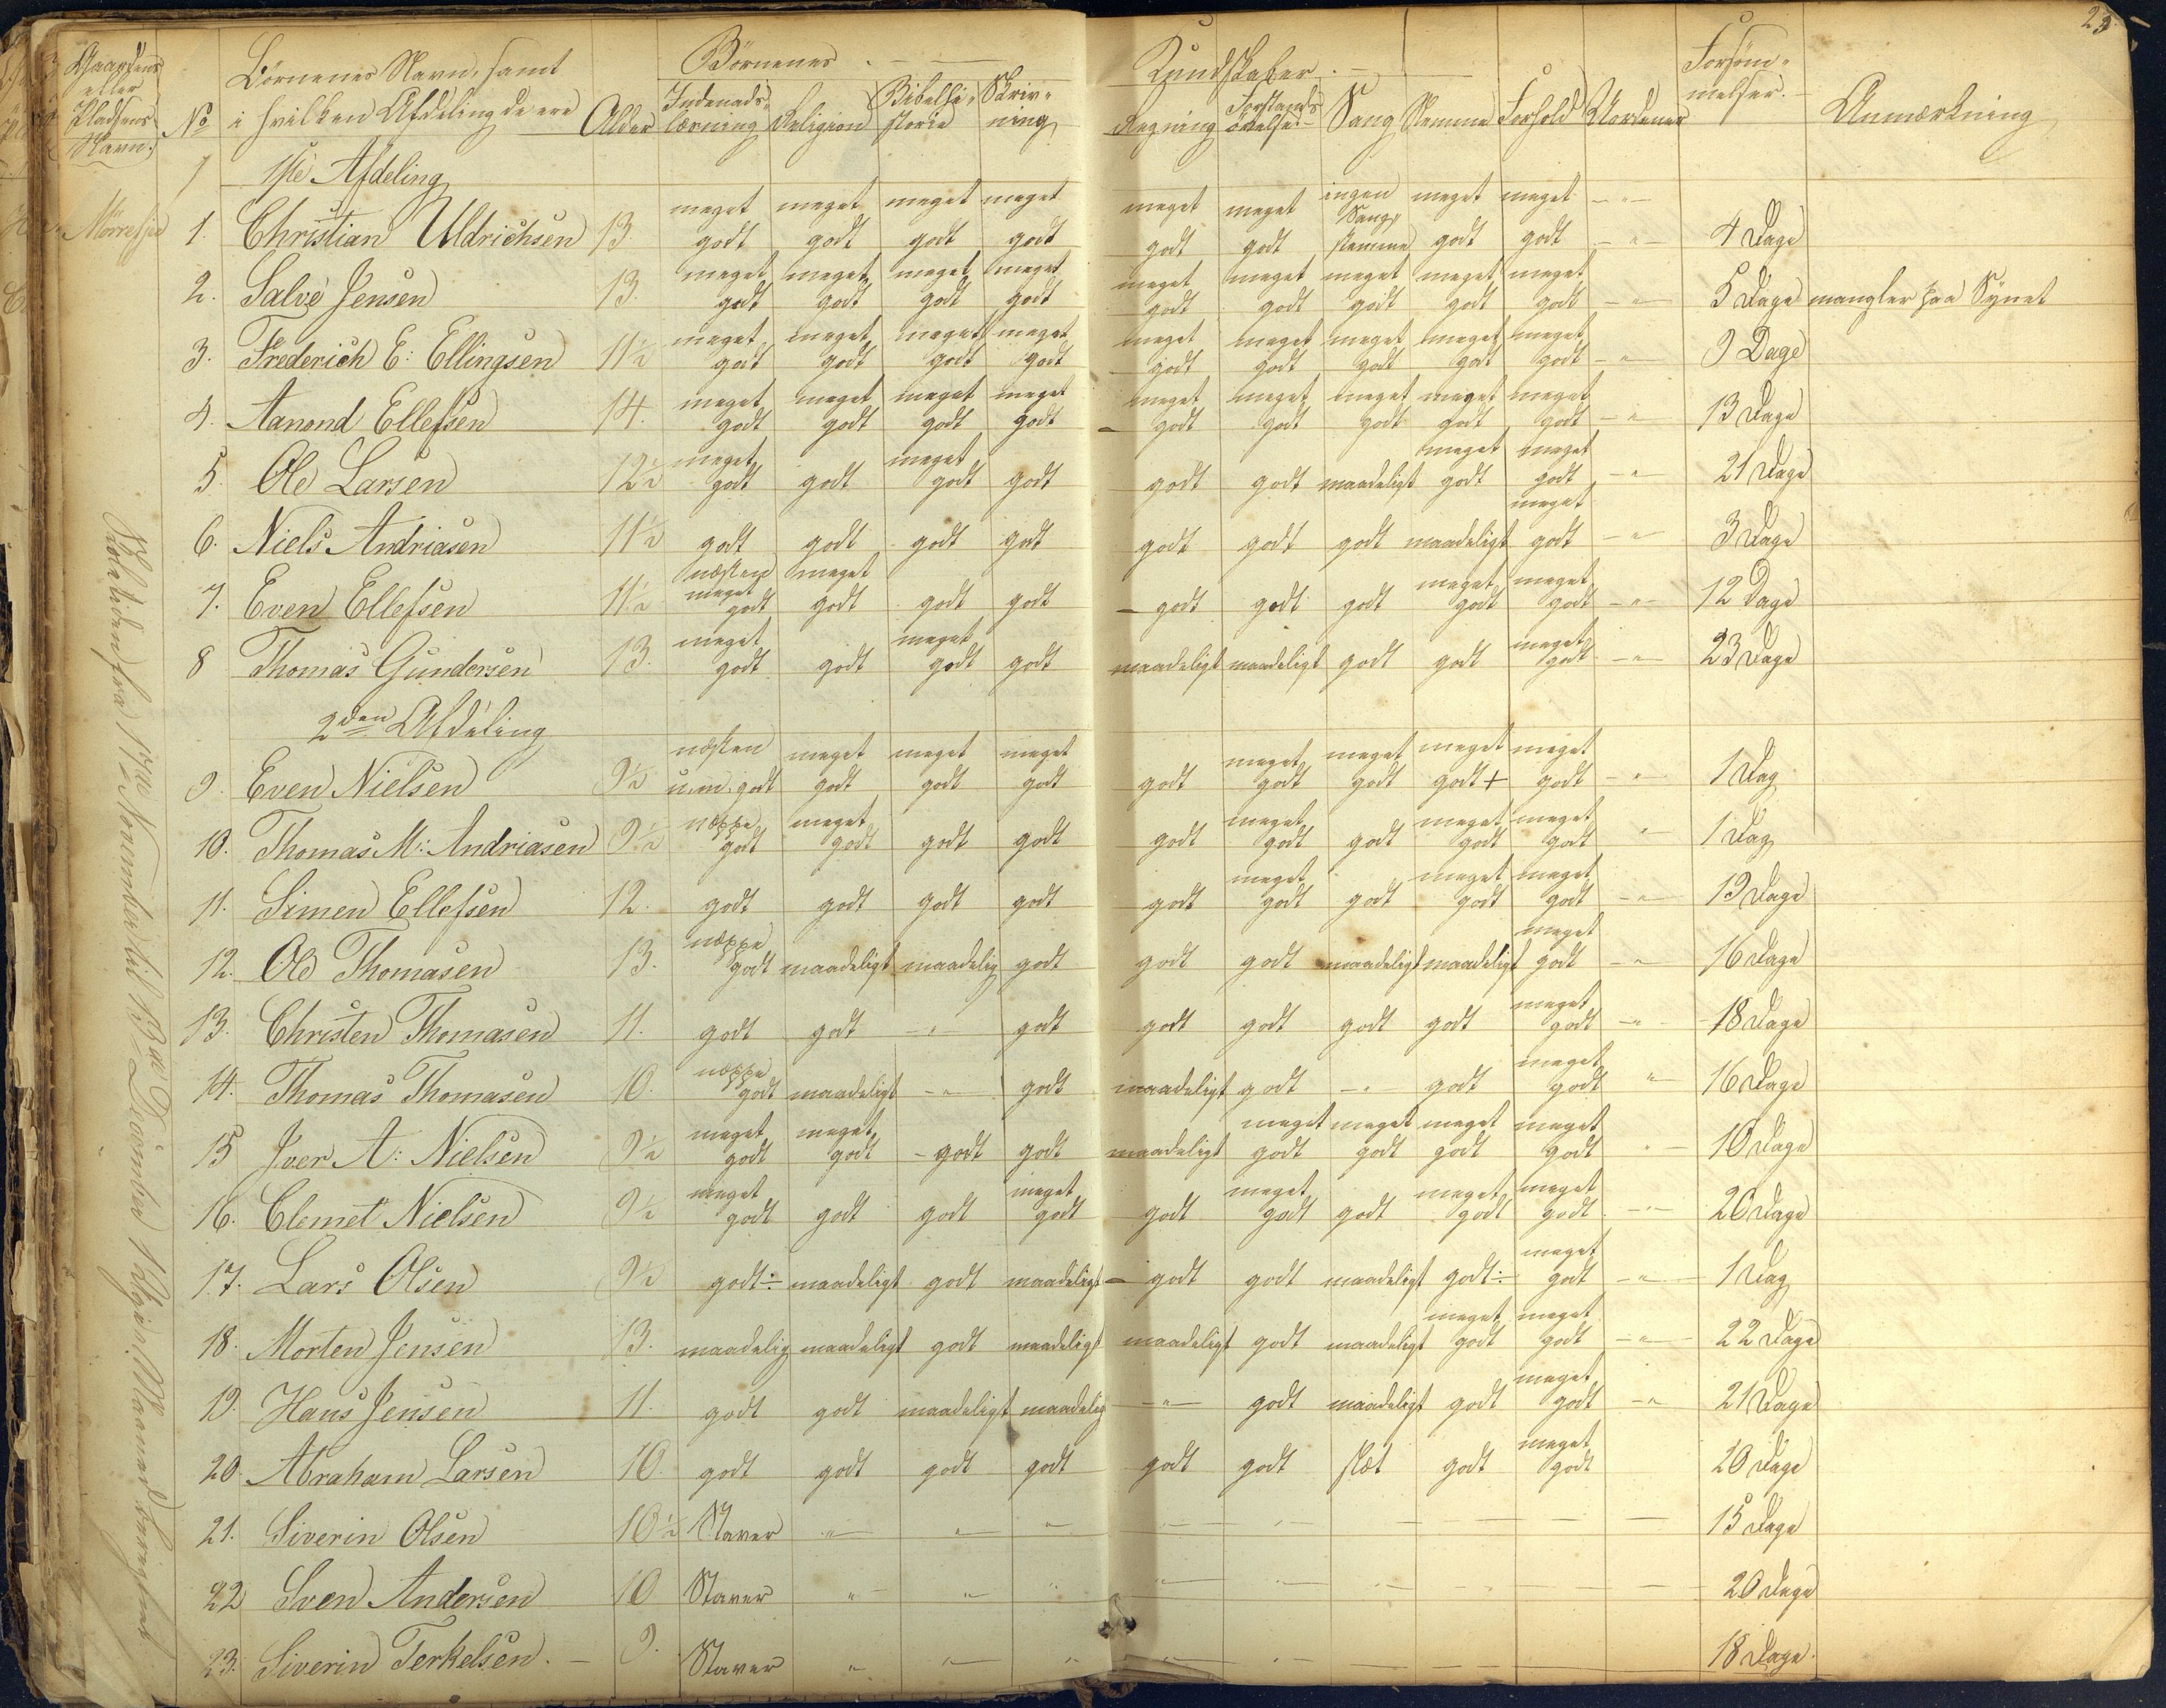 23
Gaardens eller Pladsens Navn. № Børnenes Navn, samt i hvilken Afdeling de ere Alder Børnenes Kundskaber. Forsømmelser. Anmærkning
Indenadslæsning Religion Bibelhistorie Skrivning Regning Forstandsøvelse Sang Stemme Forhold Uordener
1ste Afdeling
Mørrefjær 1. Christian Uldrichsen 13. meget godt meget godt meget godt meget godt meget godt meget godt ingen Sangstemme meget godt meget godt - " - 4 Dage
2. Salve Jensen 13. meget godt meget godt meget godt meget godt meget godt meget godt meget godt meget godt meget godt - " - 5 Dage mangler paa Synet
3. Frederich E: Ellingsen 11½ meget godt meget godt meget godt meget godt meget godt meget godt meget godt meget godt meget godt - " 9 Dage
4. Aanond Ellefsen 14. meget godt meget godt meget godt meget godt meget godt meget godt meget godt meget godt meget godt - " 13 Dage
5. Ole Larsen 12½ meget godt godt meget godt godt godt godt maadeligt meget godt meget godt - " 21 Dage
6. Niels Andriasen 11½ godt godt godt godt godt godt godt maadeligt meget godt - " - 3 Dage
7. Even Ellefsen 11½ næsten meget godt meget godt godt godt godt godt godt meget godt meget godt - " - 12 Dage
8 Thomas Gundersen 13. meget godt godt meget godt godt maadeligt maadeligt godt godt meget godt - " - 23 Dage
2den Afdeling
9. Even Nielsen 9½ næsten u.m. godt meget godt meget godt meget godt godt meget godt meget godt meget godt + meget godt - " - 1 Dag
10. Thomas M: Andriasen 9½ næppe godt meget godt godt godt godt meget godt godt meget godt meget godt " 1 Dag
11. Simen Ellefsen 12. godt godt godt godt godt meget godt godt meget godt meget godt - " - 19 Dage
12. Ole Thomasen 13. næppe godt maadeligt maadelig godt godt godt maadeligt maadeligt meget godt - " 16 Dage
13. Christen Thomasen 11. godt godt - " - godt godt godt godt godt meget godt - " - 18 Dage
14. Thomas Thomasen 10. næppe godt maadeligt - " - godt maadeligt godt - " - godt meget godt " 16 Dage
15 Iver A: Nielsen 9½ meget godt meget godt - godt godt maadeligt meget godt meget godt meget godt meget godt " 10 Dage
16. Clemet Nielsen 9½ meget godt godt godt meget godt godt meget godt godt meget godt meget godt - " - 20 Dage
17. Lars Olsen 9½ godt ÷ maadeligt godt maadeligt - godt godt maadeligt godt ÷ meget godt - " - 1 Dag
18. Morten Jensen 13. maadelig maadeligt godt maadeligt maadeligt godt maadeligt meget godt meget godt - " - 22 Dage
19. Hans Jensen 11. godt godt maadeligt maadelig - " - godt maadeligt godt meget godt - " 21 Dage
20 Abraham Larsen 10. godt godt godt godt godt godt slet godt meget godt 20 Dage
21. Siverin Olsen 10½ Staver " " " 15 Dage
22 Sven Andersen 10 Staver " " " 20 Dage
23. Siverin Terkelsen. - 9. Staver " " " 18 Dage.
Skoletiden fra
November til
December